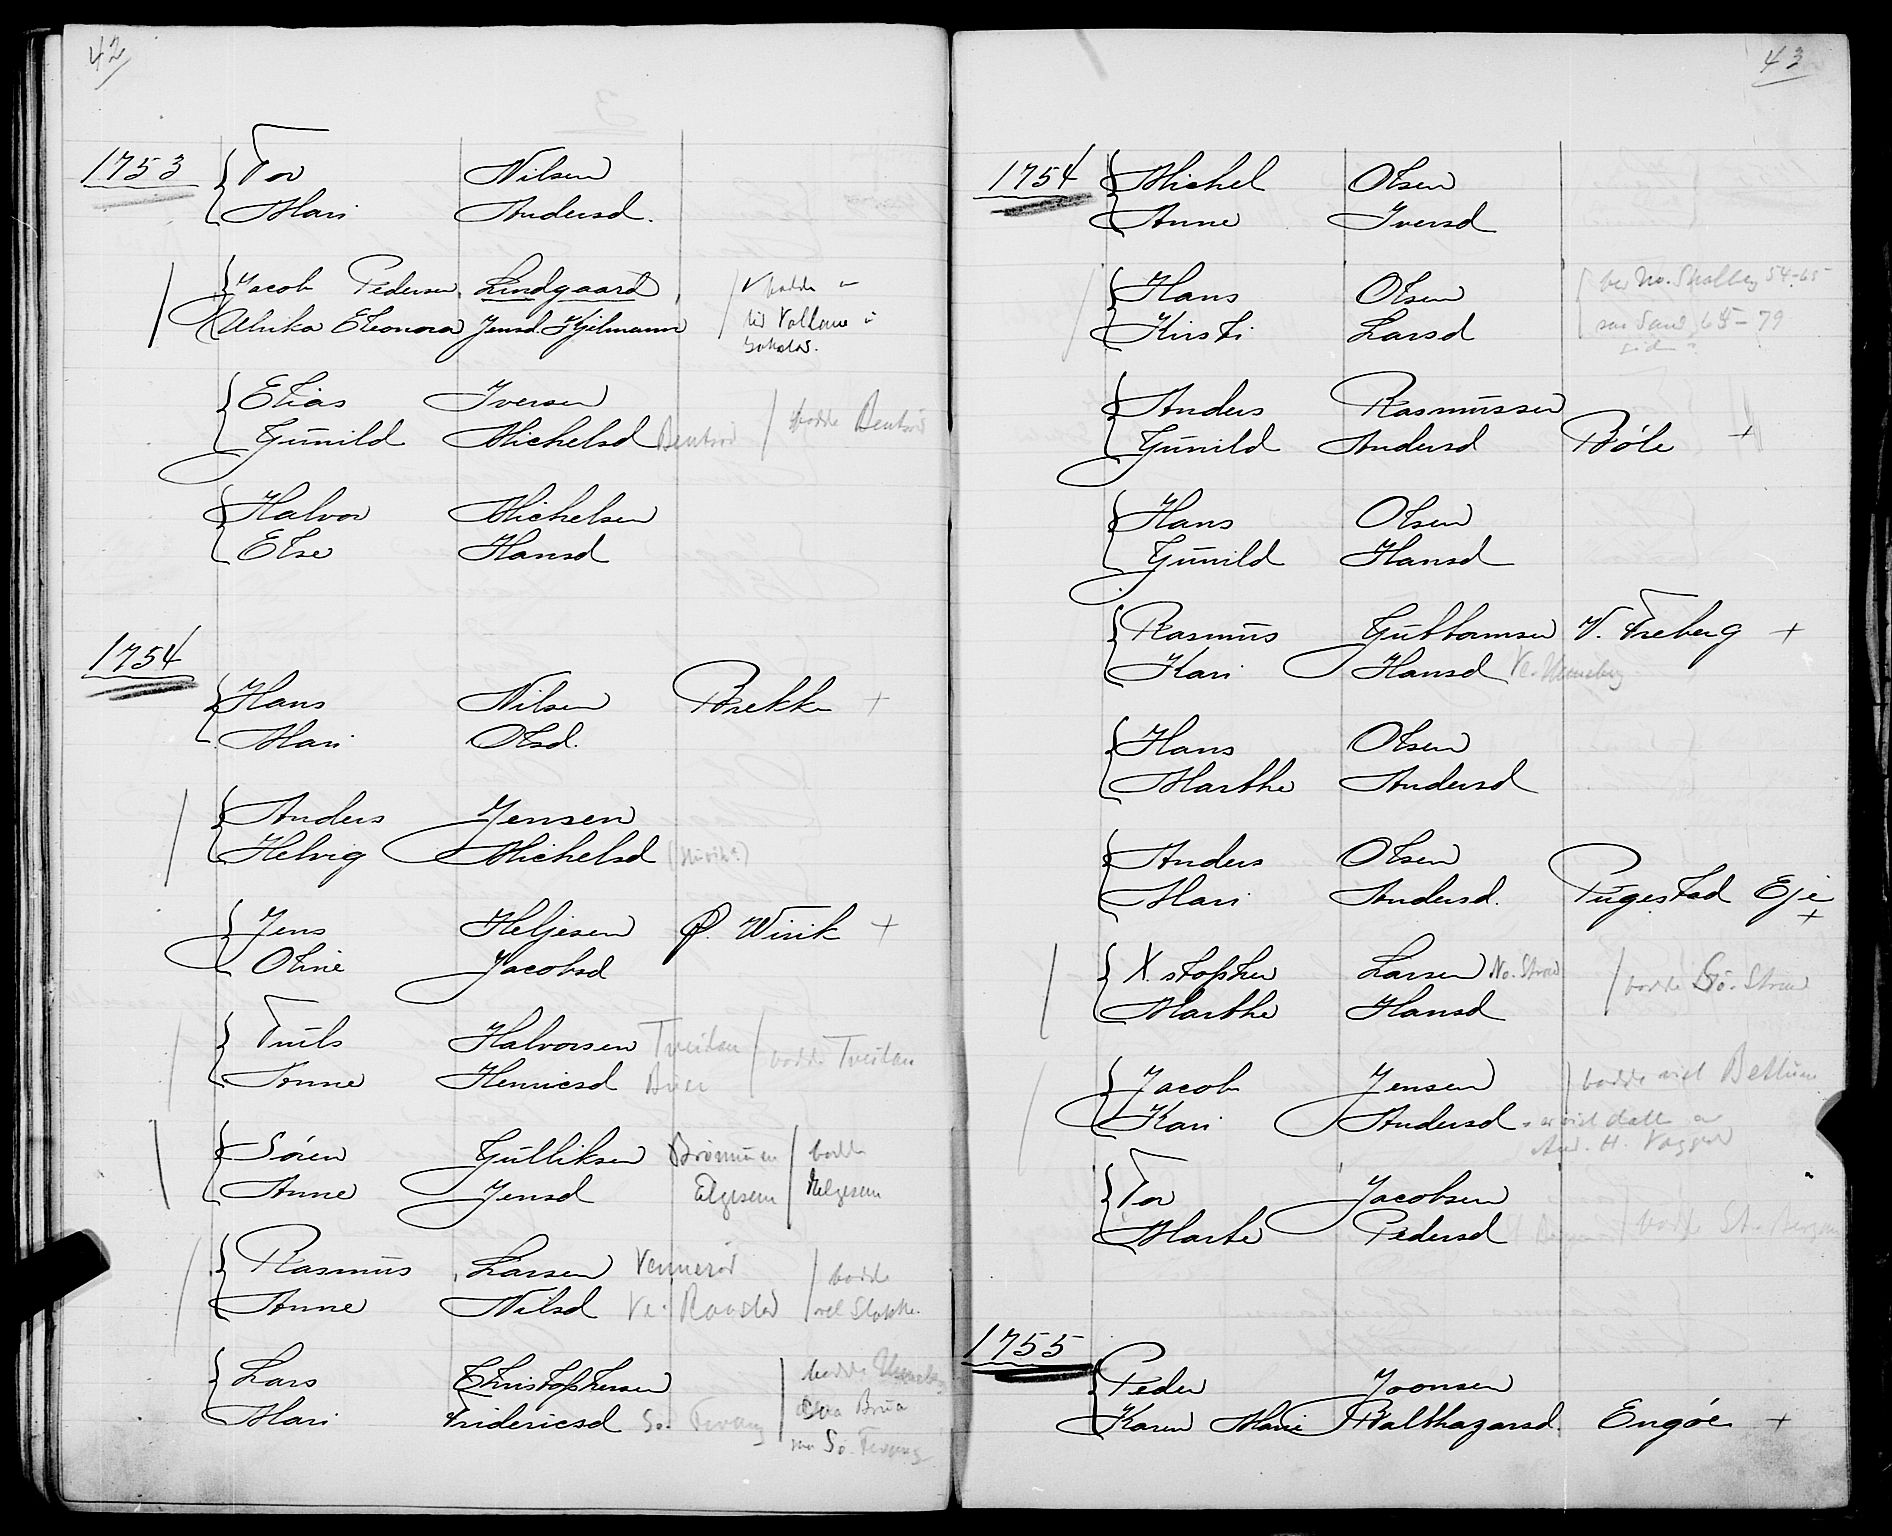 42
1753 Tov Nilsen
Mari Andersd.
Jacob Pedersen Lindgaard, bodde
Ulrika Eleonora Jensd. Hjelmann
Elias Iversen
Gunild Michelsd Bentsrød bodde Bentsrød
Halvor Michelsen
Else Hansd
1754
Hans Nilsen Brekke +
Mari Olsd.
Anders Jensen
Helvig Michelsd
Jens Heljesen Ø. Wirik +
Oline Jacobsd
Truls Halvorsen Tveitan bodde Tveitan
Anne Henricsd
Sören Gulliksen bodde
Anne Jensd Elgesem Helgesem
Rasmus Larsen Vennerød bodde
Anne Nilsd Ve. Raastad
Lars Christophersen bodde
Mari Fridericsd Sø. Fevang
Sø. Fevang
43
1754 Michel Olsen
Anne Iversd
Hans Olsen 54-65
Kirsti Larsd 65-79
Anders Rasmussen
Gunild Andersd Bøle +
Hans Olsen
Gunild Hansd
Rasmus Guttormsen V. Freberg +
Kari Hansd
Hans Olsen
Marthe Andersd
Anders Olsen
Mari Andersd. Pugestad Eje +
X.stopher Larsen No. Strand bodde Sø. Strand
Marthe Hansd
Jacob Jensen bodde
Kari Andersd
Tov Jacobsen
Marte Pedersd bodde
1755
Peder Joonsen
Karen Marie Balthazarsd. Engöe +